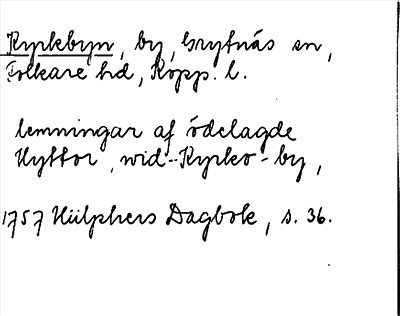 Kyrkbyn, by, Grytnäs sn,
Folkare hd, Kopp. l.
lemningar af ödelagde
Hyttor, wid Kyrko-by,
1757 Hülphers Dagbok, s. 36.